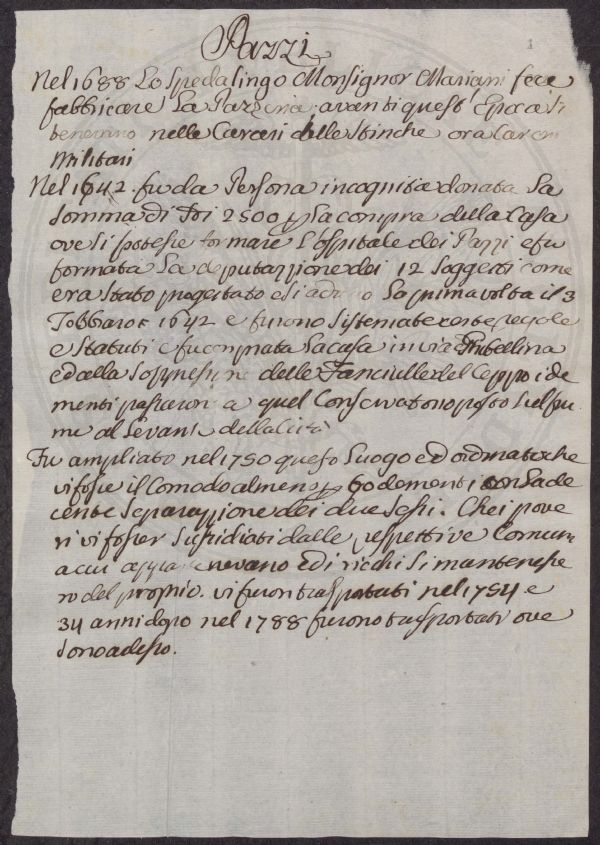 Pazzi
1
Nel 1688 Lo Spedalingo Monsignor Mariani fece
fabbricare La Pazzeria avanti quest Epoca si
tenevano nelle Carceri delle Stinche ora Carceri
Militari
Nel 1642. fu da Persona incognita donata La
Somma di 2500 p La compra della Casa
ove Si potesse formare L'ospitale dei Pazzi e fu
formata La deputazzione dei 12 Soggetti come
era Stato progettato e Si La prima volta il 3
1642 e furono Sistemate certe regole
e Statuti e fu comprata La casa in via Ghibellina
e dalla Soppressione delle Fanciulle del Ceppo i de
menti passarono a quel Conservatorio posto Sul fiu
me al Levante della Città
Fu ampliato nel 1750 questo Luogo ed ordinato che
vi fosse il Comodo almeno p 60 dementi con La de
cente Separazzione dei due Sessi. Che i pove
ri vi fosser Sussidiati dalle respettive Comuni
a cui appartenevano Ed i ricchi Si mantenesse
ro del proprio. vi furon trasportati nel 1754 e
34 anni dopo nel 1788 furono trasportati ove
Sono adesso.